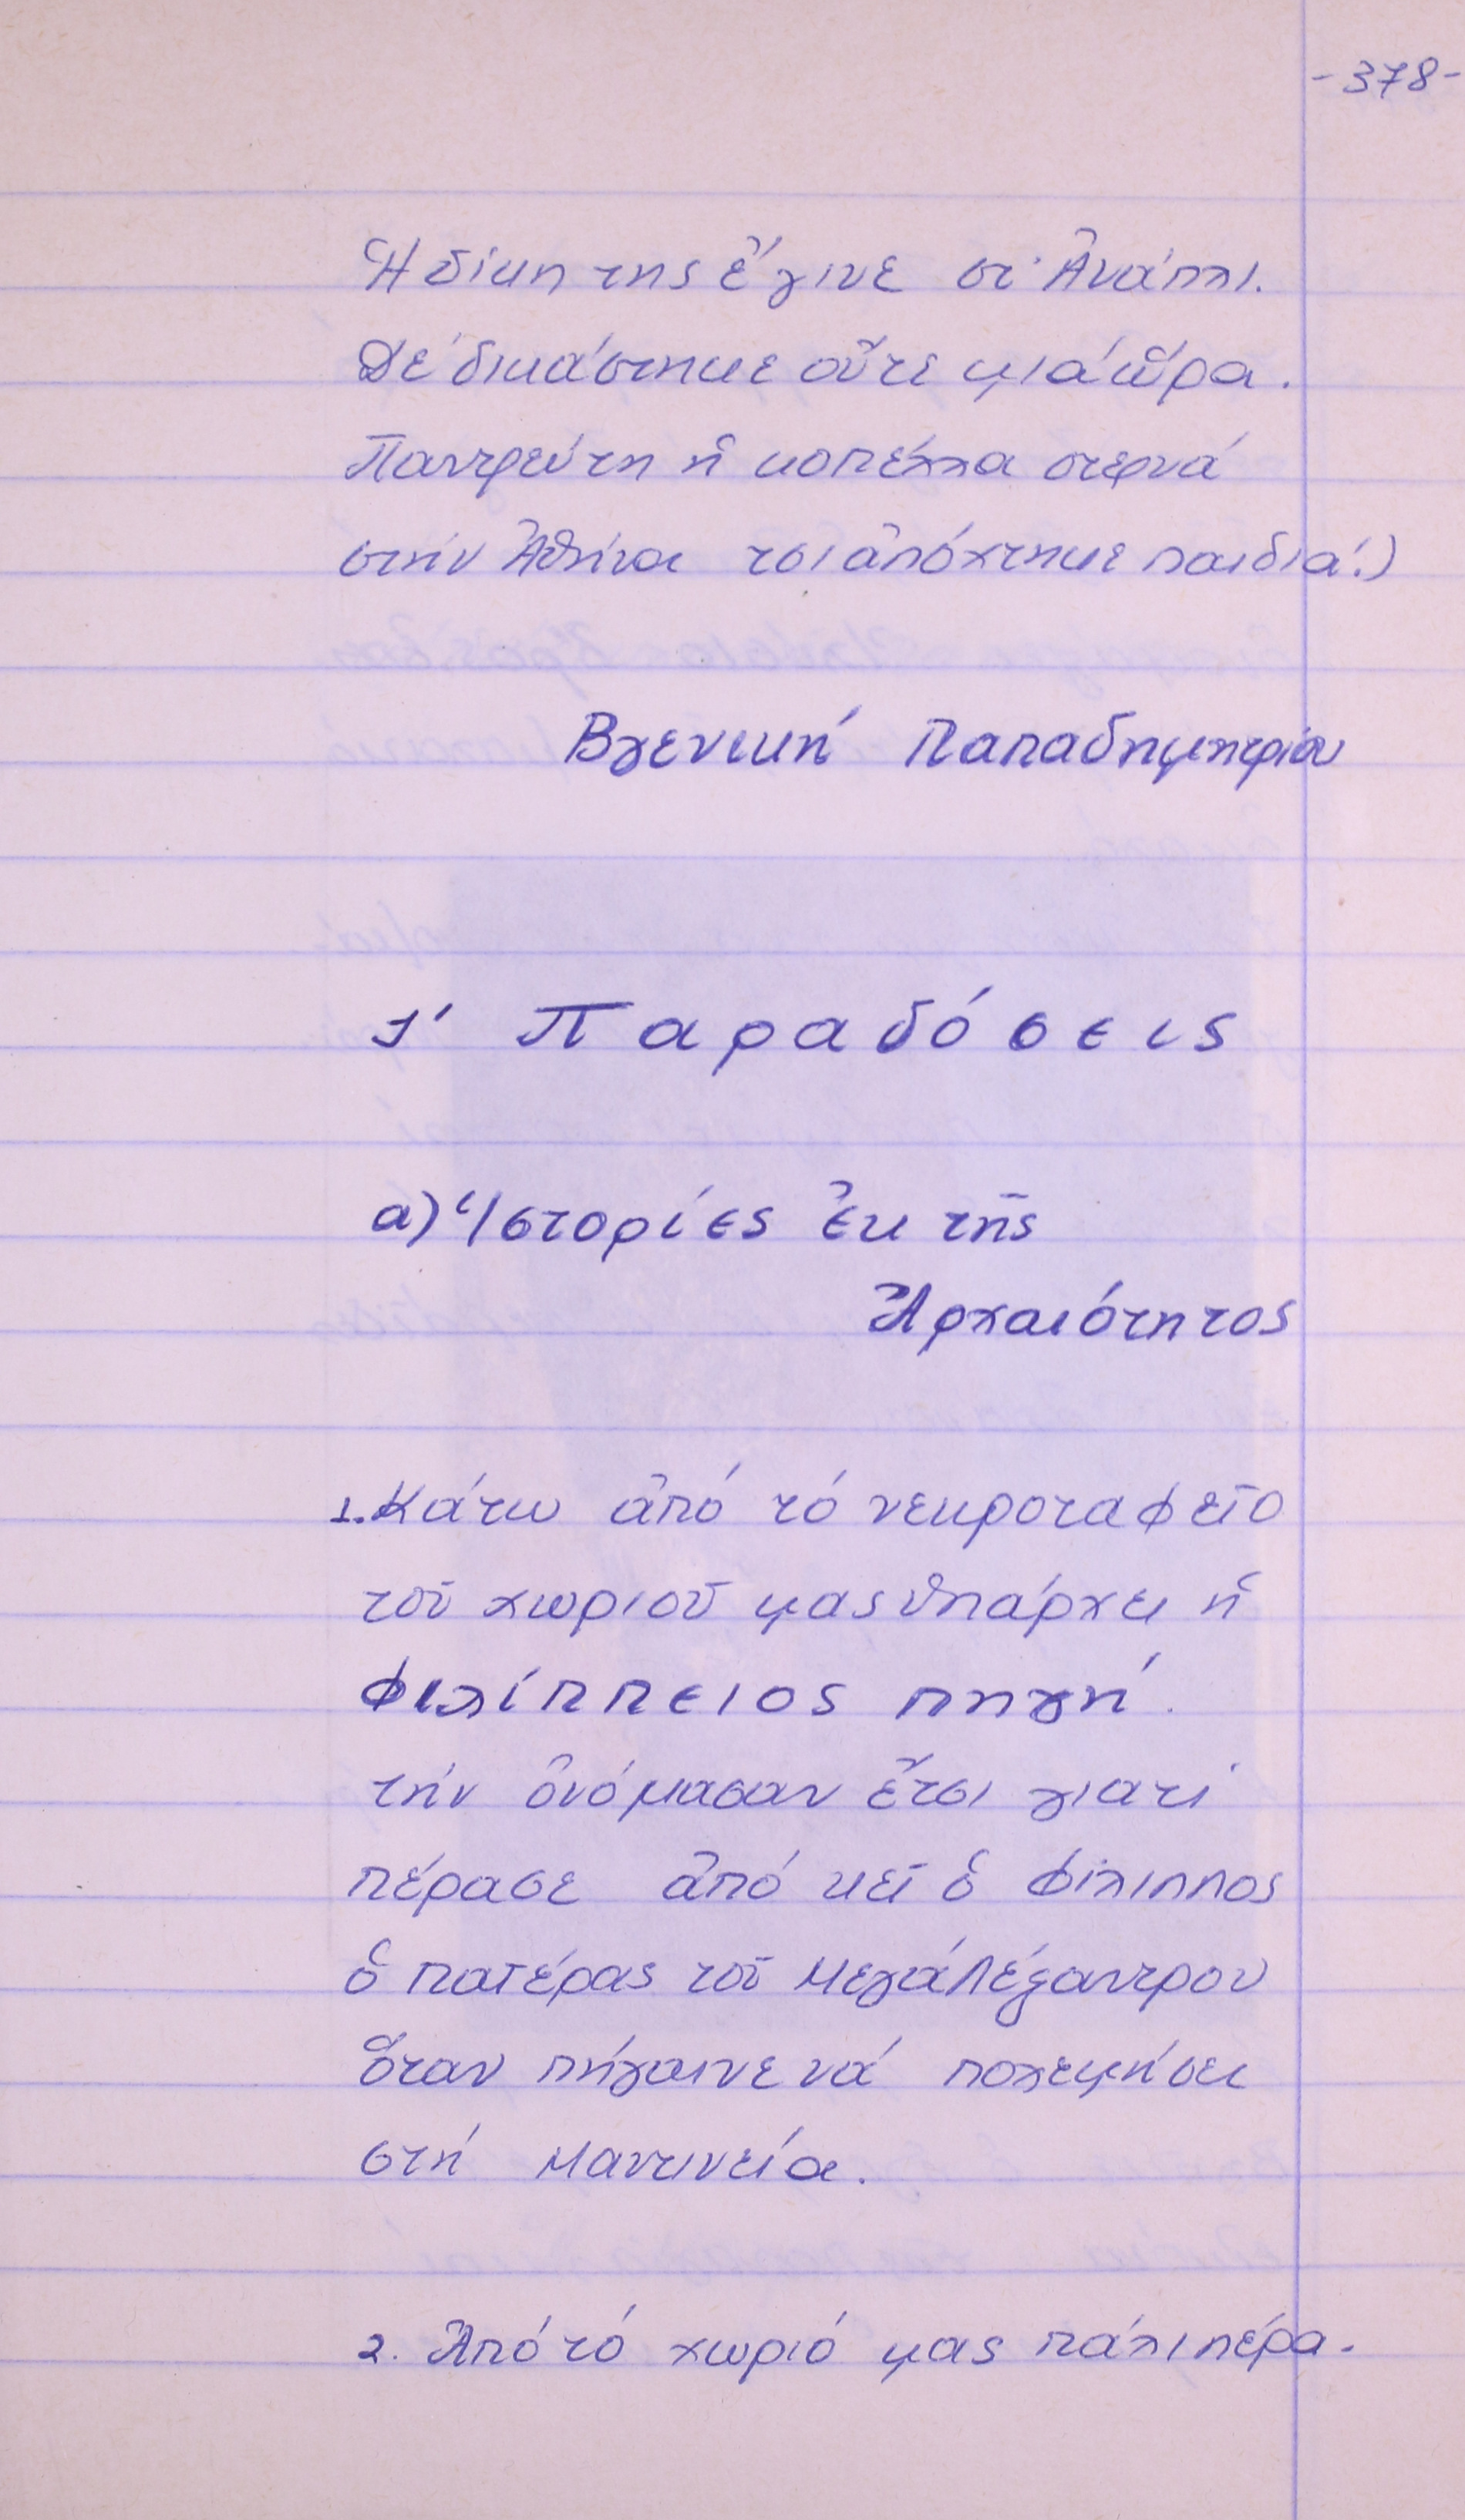 -378-
Ἡ δίκη της ἔγινε στ' Ἀνάπλι.
Δέ δικάστηκε οὔτε μιά ὥρα.
Παντρεύτη ἡ κοπέλλα στερνά
στήν Ἀθήνα τσι ἀπόχτησε παιδιά.)
Βγενική Παπαδημητρίου
Ι' Παραδόσεις
α) Ἱστορίες ἐκ τῆς
Ἀρχαιότητος
1. Κάτω ἀπό τό νεκροταφεῖο
τοῦ χωριοῦ μας ὑπάρχει ἡ
Φιλίππειος πηγή.
τήν ὀνόμασαν ἔτσι γιατί
πέρασε ἀπό κεῖ ὁ Φίλιππος
ὁ πατέρας τοῦ Μεγάλέξαντρου
ὅταν πήγαινε νά πολεμήσει
στή Μαντινεία.
2. Ἀπό τό χωριό μας πάλι πέρα-